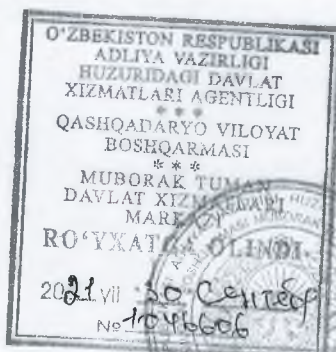 O'ZBEKISTON RESPUBLIKASI
ADLIYA VAZIRLIGI
HUZURIDAGI DAVLAT
XIZMATLARI AGENTLIGI
* * *
QASHQADARYO VILOYAT
BOSHQARMASI
* * *
MUBORAK TUMAN
DAVLAT XIZMATLARI
MARKAZI
RO‘YXATGA OLINDI
2021 yil 30 Сентябр
№ 1046606